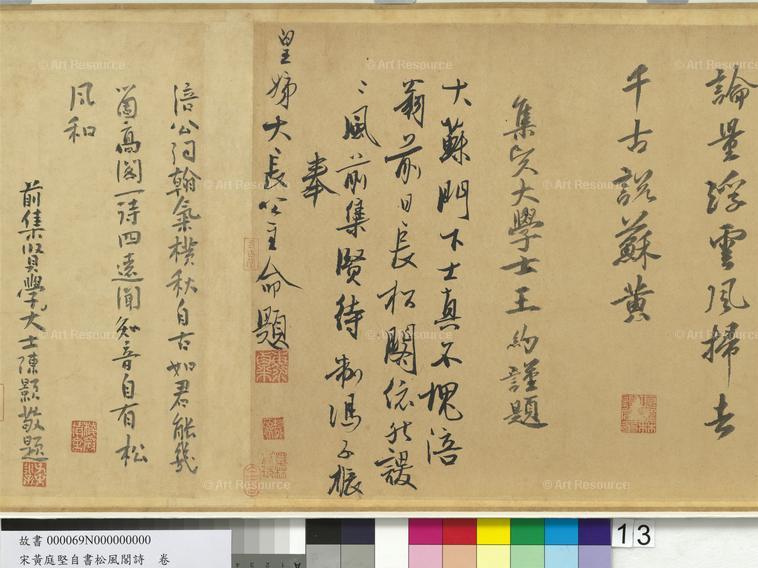 論量浮雲風掃去
千古說蘇黃
集賢大學士王約謹題
大蘇門下士真不愧涪
翁前日長松閣依然謖
〻風前集賢待制馮子振
奉
皇姊大長公主命題
涪公詞翰氣橫秋自古如君能幾
箇高閣一詩四遠聞知音自有松
風和
前集賢學大士陳顥敬題
© Art Resource
© Art Resource
© Art Resource
© Art Resource
© Art Resource
© Art Resource
© Art Resource
© Art Resource
© Art Resource
© Art Resource
© Art Resource
© Art Resource
故書 000069N000000000
宋黃庭堅自書松風閣詩 卷
13